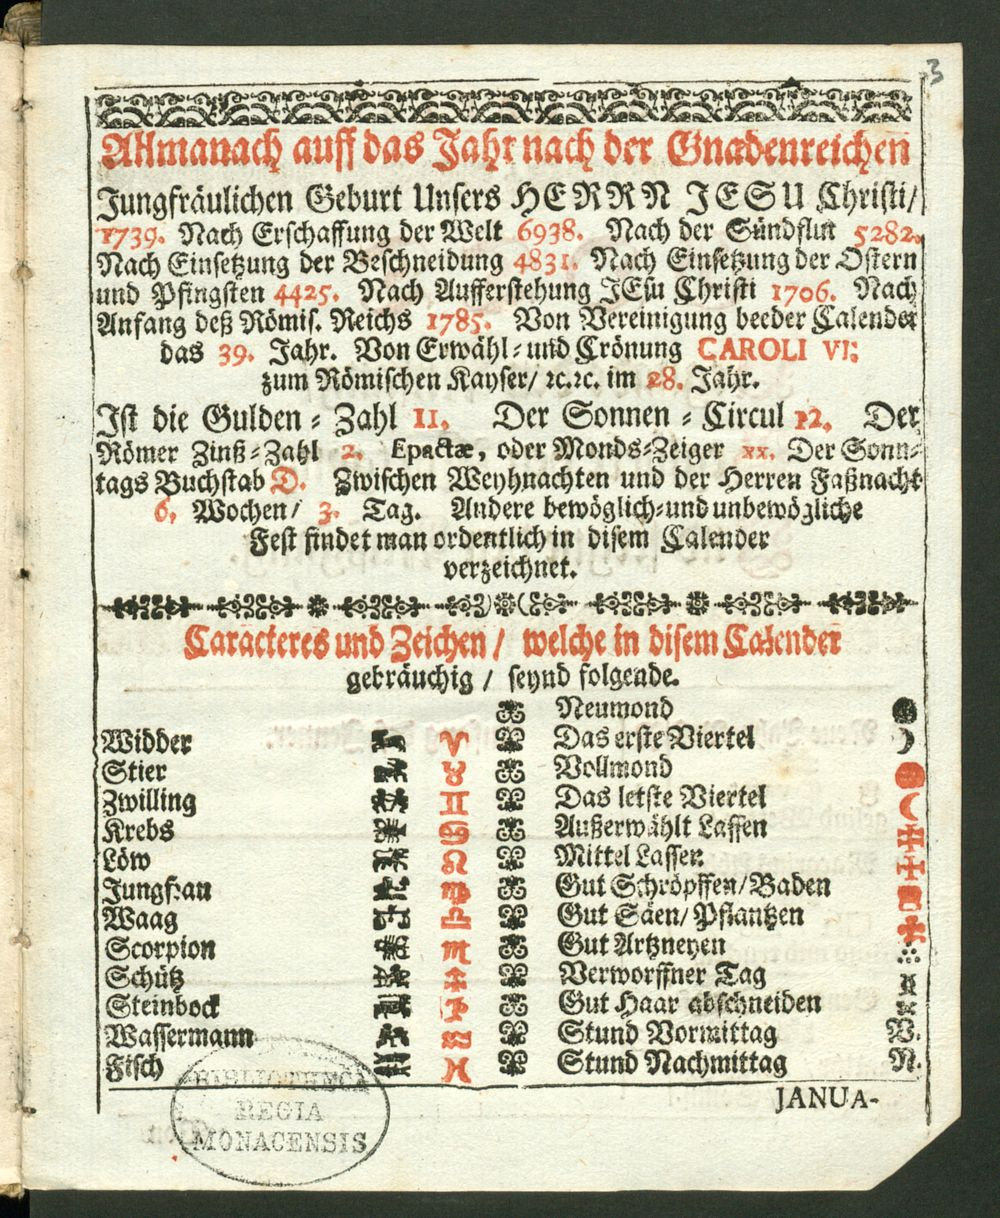 3
Allmanach auff das Jahr nach der Gnadenreichen
Jungfräulichen Geburt Unsers HERRN JESU Christi/
1739. Nach Erschaffung der Welt 6938. Nach der Sündflut 5282.
Nach Einsetzung der Beschneidung 4831. Nach Einsetzung der Ostern
und Pfingsten 4425. Nach Aufferstehung JEsu Christi 1706. Nach
Anfang deß Römis. Reichs 1785. Von Vereinigung beeder Calender
das 39. Jahr. Von Erwähl- und Crönung CAROLI VI.
zum Römischen Kayser/ ꝛc.ꝛc. im 28. Jahr.
Ist die Gulden-Zahl 11. Der Sonnen-Circul 12. Der
Römer Zinß-Zahl 2. Epactæ, oder Monds-Zeiger xx. Der Sonn-
tags Buchstab D. Zwischen Weyhnachten und der Herren Faßnacht
6. Wochen/ 3. Tag. Andere bewöglich-und unbewögliche
Fest findet man ordentlich in disem Calender
verzeichnet.
Caracteres und Zeichen/ welche in disem Calender
gebräuchig/ seynd folgende.
Neumond
Widder ♈ Das erste Viertel
Stier ♉ Vollmond
Zwilling ♊ Das letste Viertel
Krebs ♋ Außerwählt Lassen
Löw ♌ Mittel Lassen
Jungfrau ♍ Gut Schröpffen/Baden
Waag ♎ Gut Säen/ Pflantzen
Scorpion ♏ Gut Artzneyen
Schütz ♐ Verworffner Tag
Steinbock ♑ Gut Haar abschneiden
Wassermann ♒ Stund Vormittag V.
Fisch ♓ Stund Nachmittag N.
JANUA-
BIBLIOTHECA
REGIA
MONACENSIS